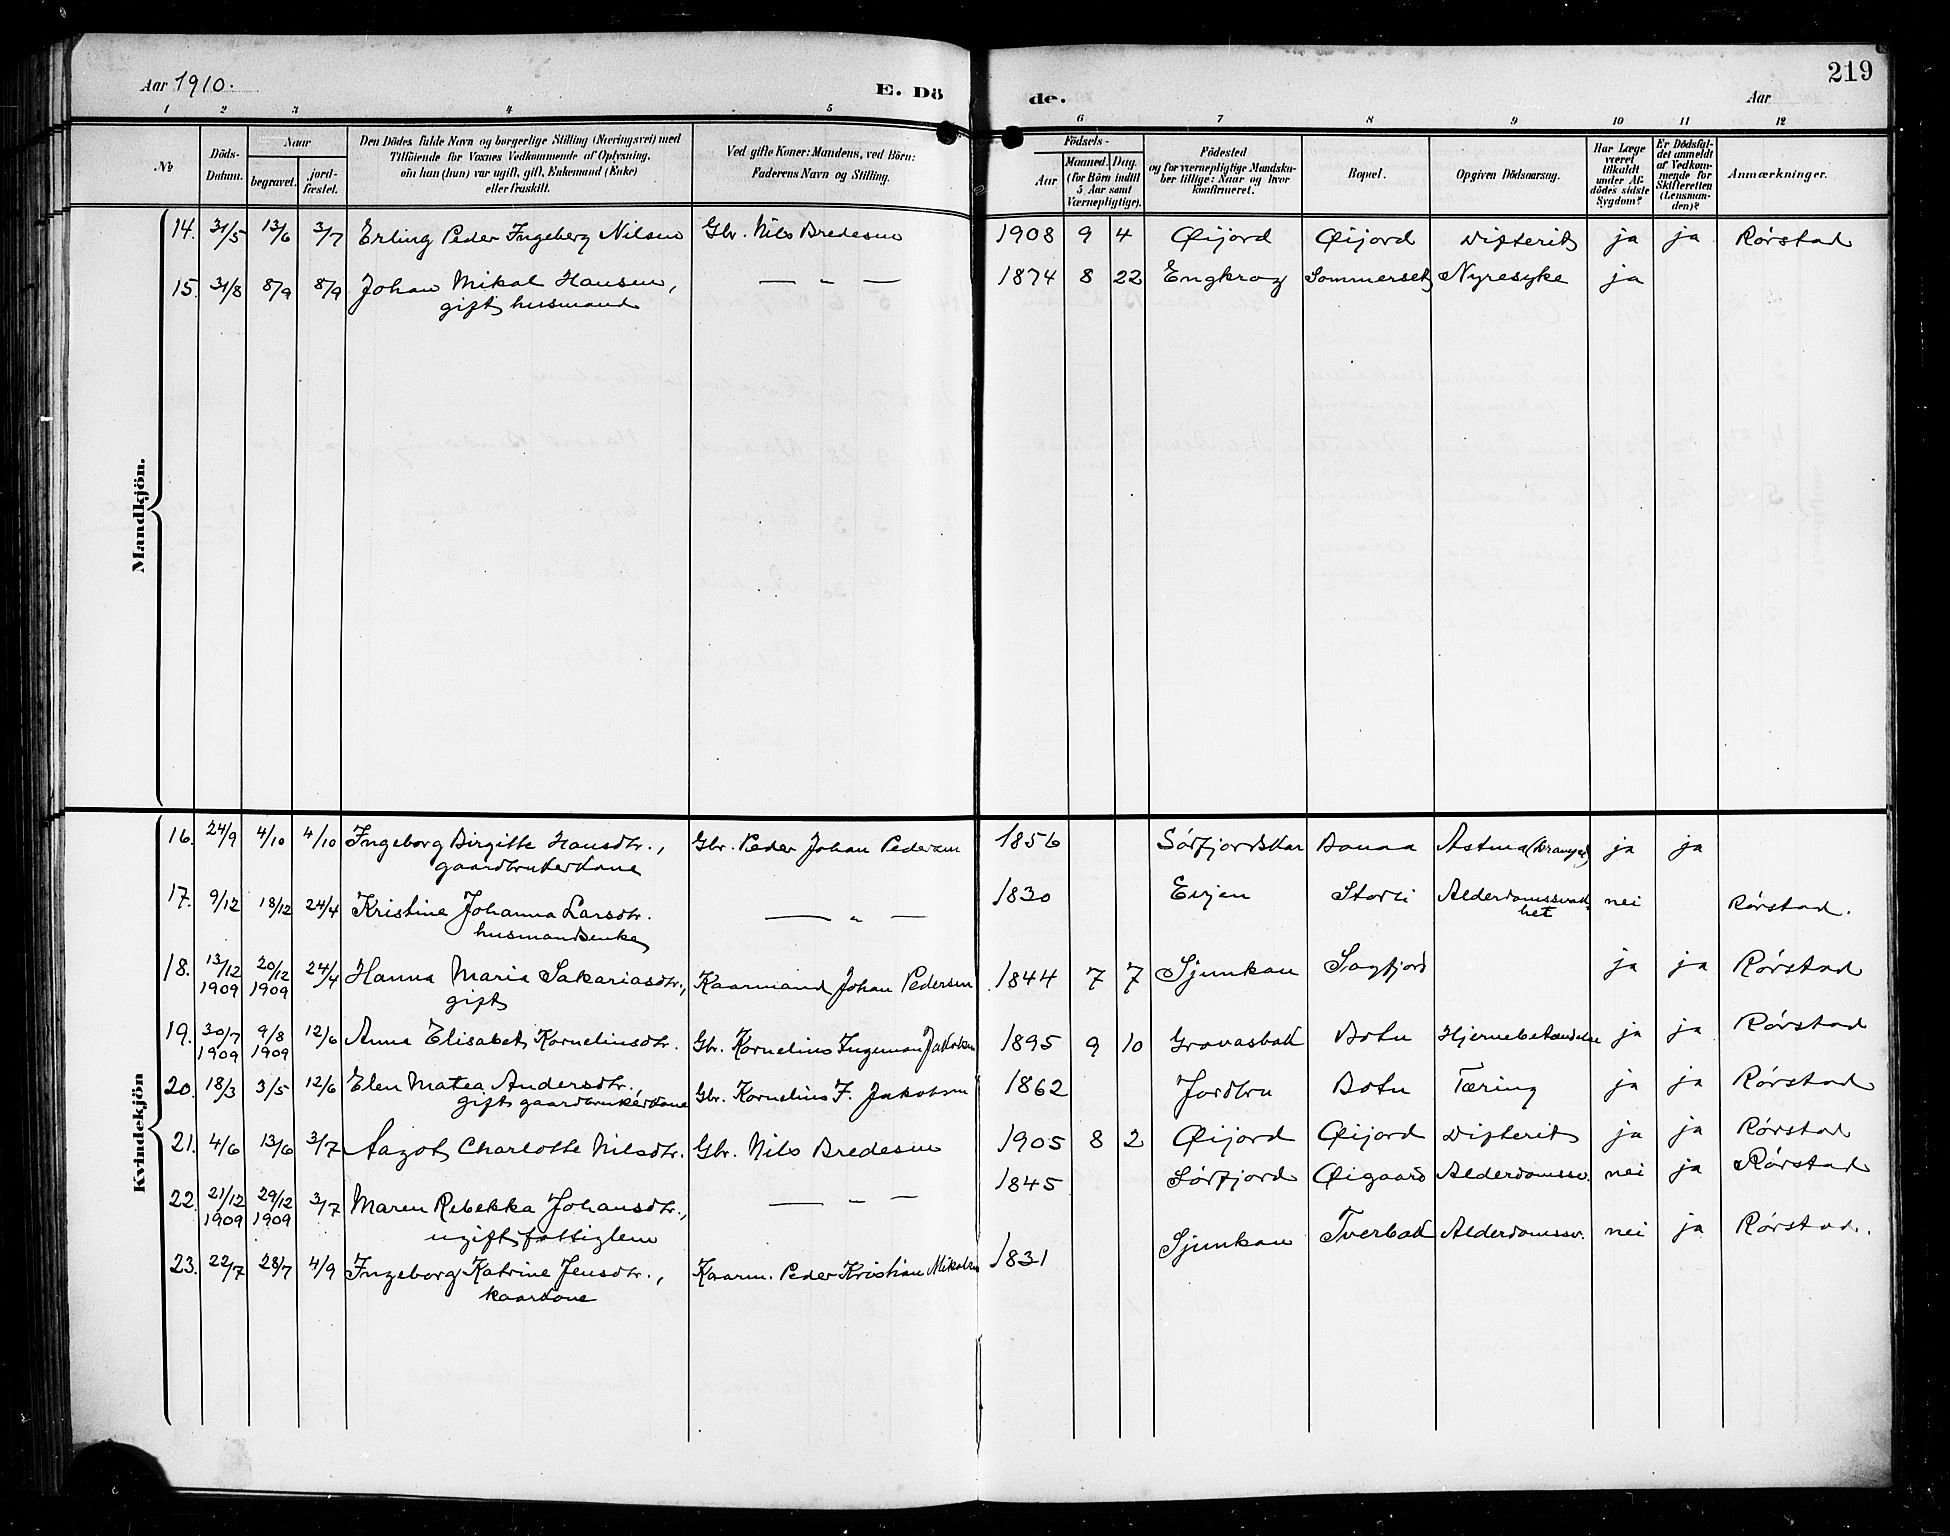 219
Aar 1910. E. Dö de. Aar
1 2 3 4 5 6 7 8 9 10 11 12
№
Döds-Datum.
Naar
begravet.
jord-fæstet.
Den Dödes fulde Navn og borgerlige Stilling (Næringsvei) med
Tilföiende for Voxnes Vedkommende af Oplysning,
om han (hun) var ugift, gift, Enkemand (Enke)
eller fraskilt.
Ved gifte Koner: Mandens, ved Börn:
Faderens Navn og Stilling.
Födsels-
Aar
Maaned. Dag.
(for Börn indtil
5 Aar samt
Værnepligtige).
Födested
og for værnepligtige Mandskaber tillige: Naar og hvor
konfirmeret.
Bopæl.
Opgiven Dödsaarsag.
Har Læge
været
tilkaldt
under Afdödes sidste
Sygdom?
Er Dödsfaldet anmeldt
af Vedkommende for
Skifteretten
(Lensmanden)?
Anmærkninger.
Mandkjön.
14. 31/5 13/6 3/7 Erling Peder Ingeberg Nilsen Gbr. Nils Bredesen 1908 9 4 Øijord Øijord Difterit ja ja Rørstad
15. 31/8 8/9 8/9 Johan Mikal Hansen, — „ — 1874 8 22 Engkrog Sommerset Nyresyke ja
gift husmand
Kvindekjön
16. 24/9 4/10 4/10 Ingeborg Birgitte Hansdtr., Gbr. Peder Johan Pedersen 1856 Sørfjordskar Bonaa Astma ja ja
gaardbrukerkone
17. 9/12 18/12 24/4 Kristine Johanna Larsdtr. — „ — 1830 Evjen Storli Alderdomssvak- nei Rørstad.
husmandsenke het
18. 13/12 1909 20/12 1909 24/4 Hanna Maria Sakariasdtr., Kaarmand Johan Pedersen 1844 7 7 Sjunkan Sagfjord ja ja Rørstad
gift
19. 30/7 1909 9/8 1909 12/6 Anna Elisabet Kornelinsdtr. Gbr. Kornelius Ingeman Jakobsen 1895 9 10 Gravasbak Botn Hjernebetændelse ja ja Rørstad
20. 18/3 3/5 12/6 Elen Matea Andersdtr., Gbr. Kornelius I. Jakobsen 1862 Jordbru Botn Tæring ja ja Rørstad
gift gaardbrukerkone
21. 4/6 13/6 3/7 Aagot Charlotte Nilsdtr. Gbr. Nils Bredesen 1905 8 2 Øijord Øijord Difterit ja ja Rørstad
22. 21/12 1909 29/12 1909 3/7 Maren Rebekka Johansdtr., — „ — 1845 Sørfjord Øigaard Alderdomssv. nei ja Rørstad
ugift fattiglem
23. 22/7 28/7 4/9 Ingeborg Katrine Jensdtr., Kaarm. Peder Kristian Mikalsen 1831 Sjunkan Tverbak Alderdomssv. nei ja Rørstad.
kaarkone